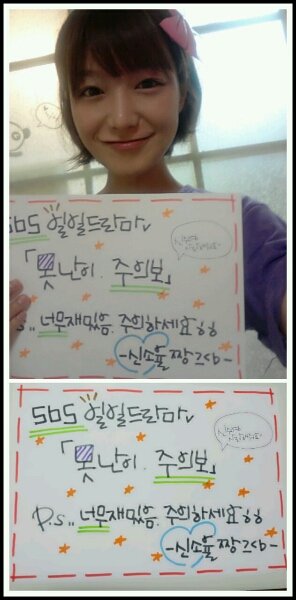 SBS 일일드라마
「못난이 주의보」
s.. 너무재밌음. 주의하세요ㅎㅎ
-신소율 짱
SBS 일일드라마
「못난이. 주의보」
P.s.. 너무재밌음. 주의하세요ㅎㅎ
-신소율 짱